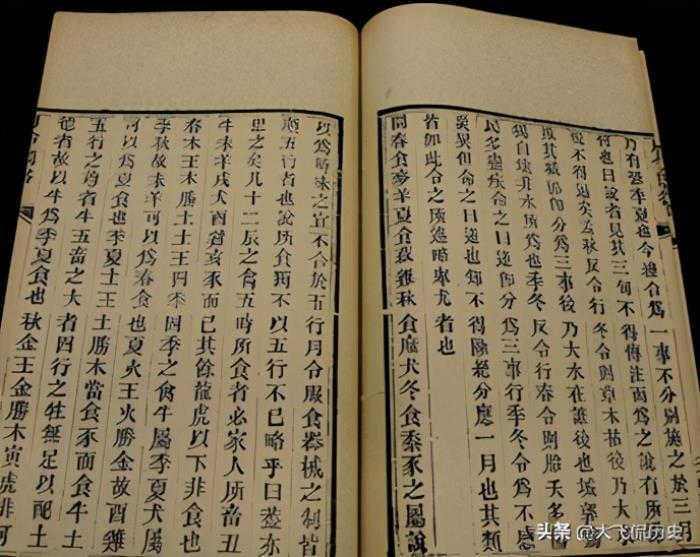 乃有恐季夏也今總合為一事不分別施之於三
也曰說者見其三旬不得傳注而為之說有所
不得通矣孟秋反令行冬令則草木枯後乃大水
敗其城郭即分為三事後乃大水在誰後也城郭
為獨自壞非水所為也季冬反令行春令則胎夭多傷
民多蠱疾命之曰逆即分為三事行季冬令為不感
災異但命之曰逆也知不得斷絕分應一月也其類
皆如此令之所述略舉尤者也
問春食麥羊夏食菽雞秋食麻犬冬食黍豕之屬說
以為時味之宜不合於五行月令服食器械之制皆
順五行者也說所食獨不以五行不已略乎曰蓋亦
思之矣凡十二辰之禽五時所食者必家人所畜丑
牛未羊戌犬酉雞亥豕而已其餘龍虎以下非食也
春木王木勝土土王四季四季之禽牛屬季夏犬屬
季秋故未羊可以為春食也夏火王火勝金故酉雞
可以為夏食也季夏土王土勝木當食豕而食牛土
五行之尊者牛五畜之大者四行之牲無足以配土
德者故以牛為季夏食也秋金王金勝木寅虎非可
頭条 @大飞侃历史